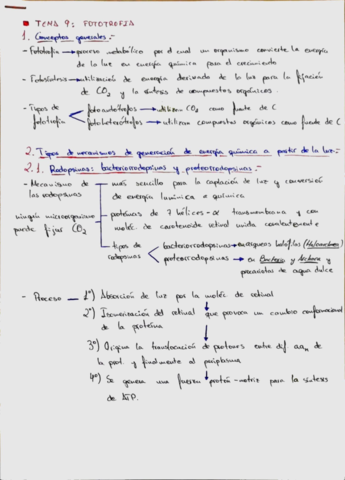 TEMA 9: FOTOTROFIA
1. Conceptos generales:-
- Fototrofia → proceso metabólico por el cual un organismo convierte la energía
de la luz en energía química para el crecimiento
- Fotosíntesis → utilización de energía derivada de la luz para la fijación
de CO2 y la síntesis de compuestos orgánicos.
- Tipos de fototrofia
fotoautótrofos → utilizan CO2 como fuente de C
fotoheterótrofos → utilizan compuestos orgánicos como fuente de C
2. Tipos de mecanismos de generación de energía química a partir de la luz:-
2.1. Rodopsinas: bacteriorrodopsinas y proteorrodopsinas:-
- Mecanismo de las rodopsinas
más sencillo para la captación de luz y conversión
de energía lumínica a química
ningún microorganismo
puede fijar CO2
proteínas de 7 hélices-α transmembrana y con
moléc de carotenoide retinal unida covalentemente
tipos de rodopsinas
bacteriorrodopsinas → arqueas halófilas (Haloarchaea)
proteorrodopsinas → en Bacteria y Archaea y
procariotas de agua dulce
- Proceso
1º) Absorción de luz por la moléc de retinal
2º) Isomerización del retinal que provoca un cambio conformacional
de la proteína
3º) Origina la translocación de protones entre dif. aan de
la prot. y finalmente al periplasma
4º) Se genera una fuerza protón-motriz para la síntesis
de ATP.